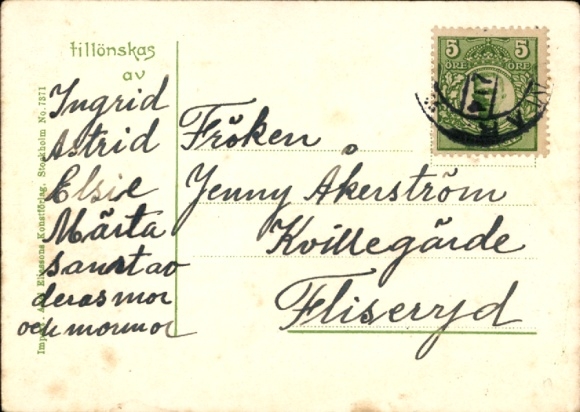 tillönskas
av
Ingrid
Astrid
Elsie
Märta
samt av
deras mor
och mormor
Fröken
Jenny Åkerström
Kvillegärde
Fliseryd
5 5
ÖRE ÖRE
Konstförlag, Stockholm No. 7371